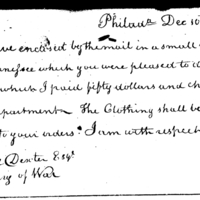 Philada Dec 10
ve enclosed by the mail in a small
nessee which you were pleased to d
which I paid fifty dollars and ch
partment The Clothing shall be
to your orders. I am with respect
Dexter Esqr
ry of War